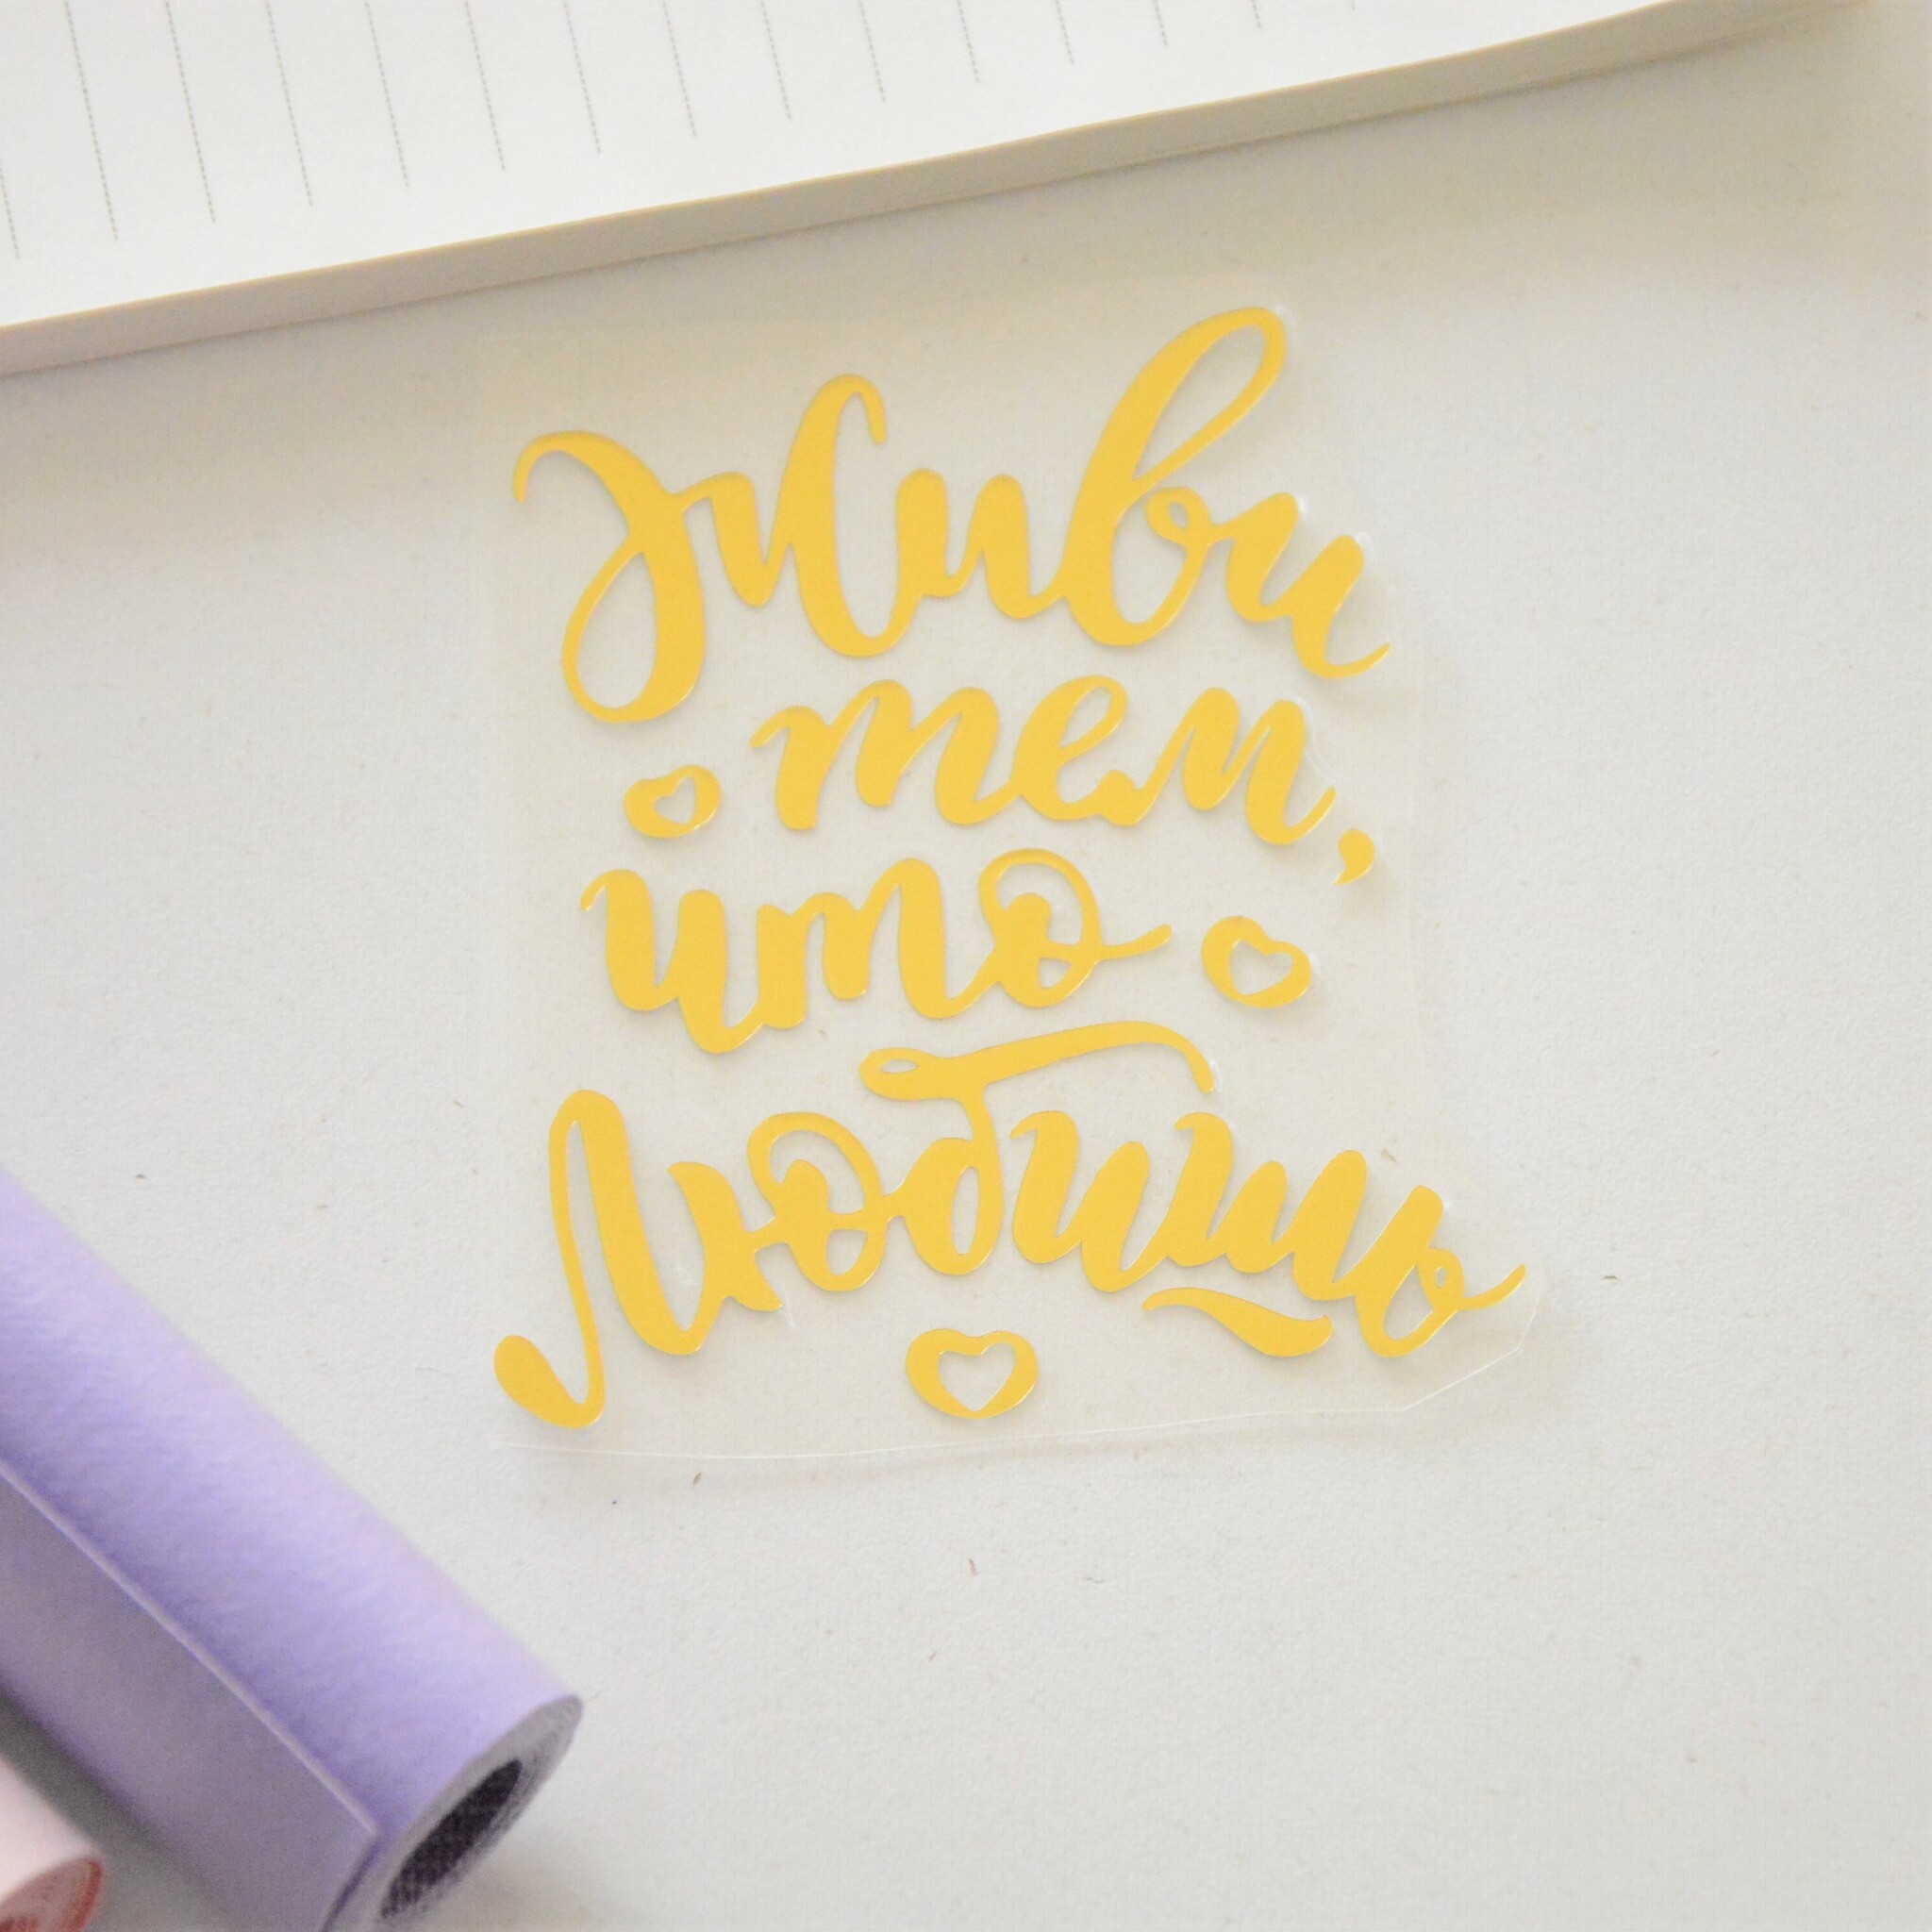 Живи
тем,
что
Любишь